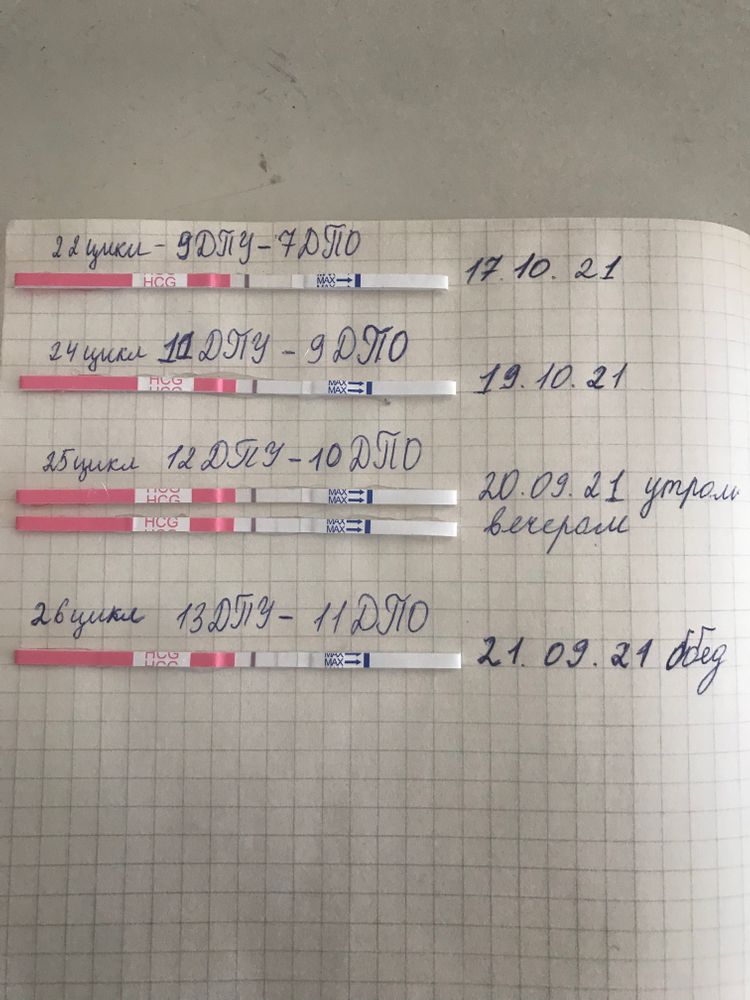 22 цикл - 9ДПУ - 7ДПО
HCG
MAX
17.10.21
24 цикл 11ДПУ - 9ДПО
HCG
MAX
MAX
19.10.21
25 цикл 12ДПУ - 10ДПО
HCG
MAX
MAX
20.09.21 утром
HCG
MAX
MAX
вечером
26 цикл 13ДПУ - 11ДПО
HCG
HCG
MAX
MAX
21.09.21 обед